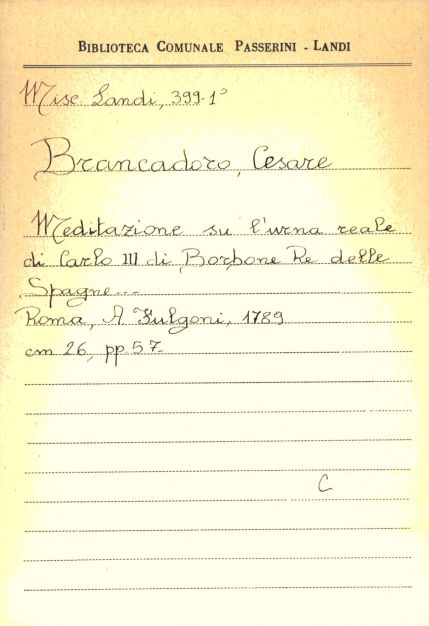 BIBLIOTECA COMUNALE PASSERINI - LANDI
Misc Landi, 399-1°
Brancadoro, Cesare
Meditazione su l'urna reale
di Carlo III di Borbone Re delle
Spagne...
Roma, A Fulgoni, 1789
cm 26, pp. 57
C